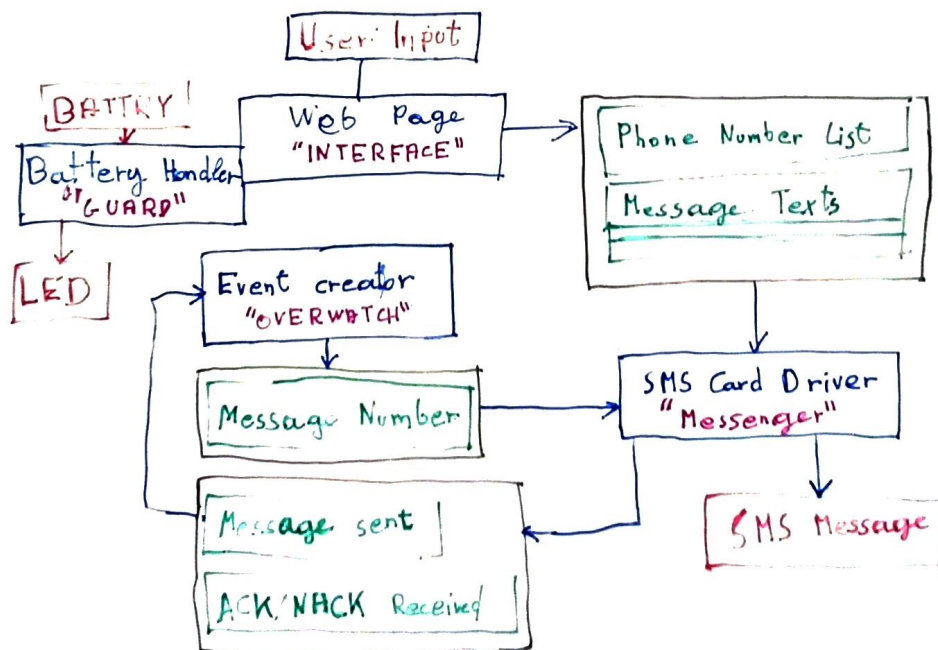 User Input
BATTRY
Web Page
"INTERFACE"
Battery Handler
or
"GUARD"
LED
Phone Number List
Message Texts
Event creator
"OVERWATCH"
Message Number
SMS Card Driver
"Messenger"
Message sent
ACK/NACK Received
SMS Message